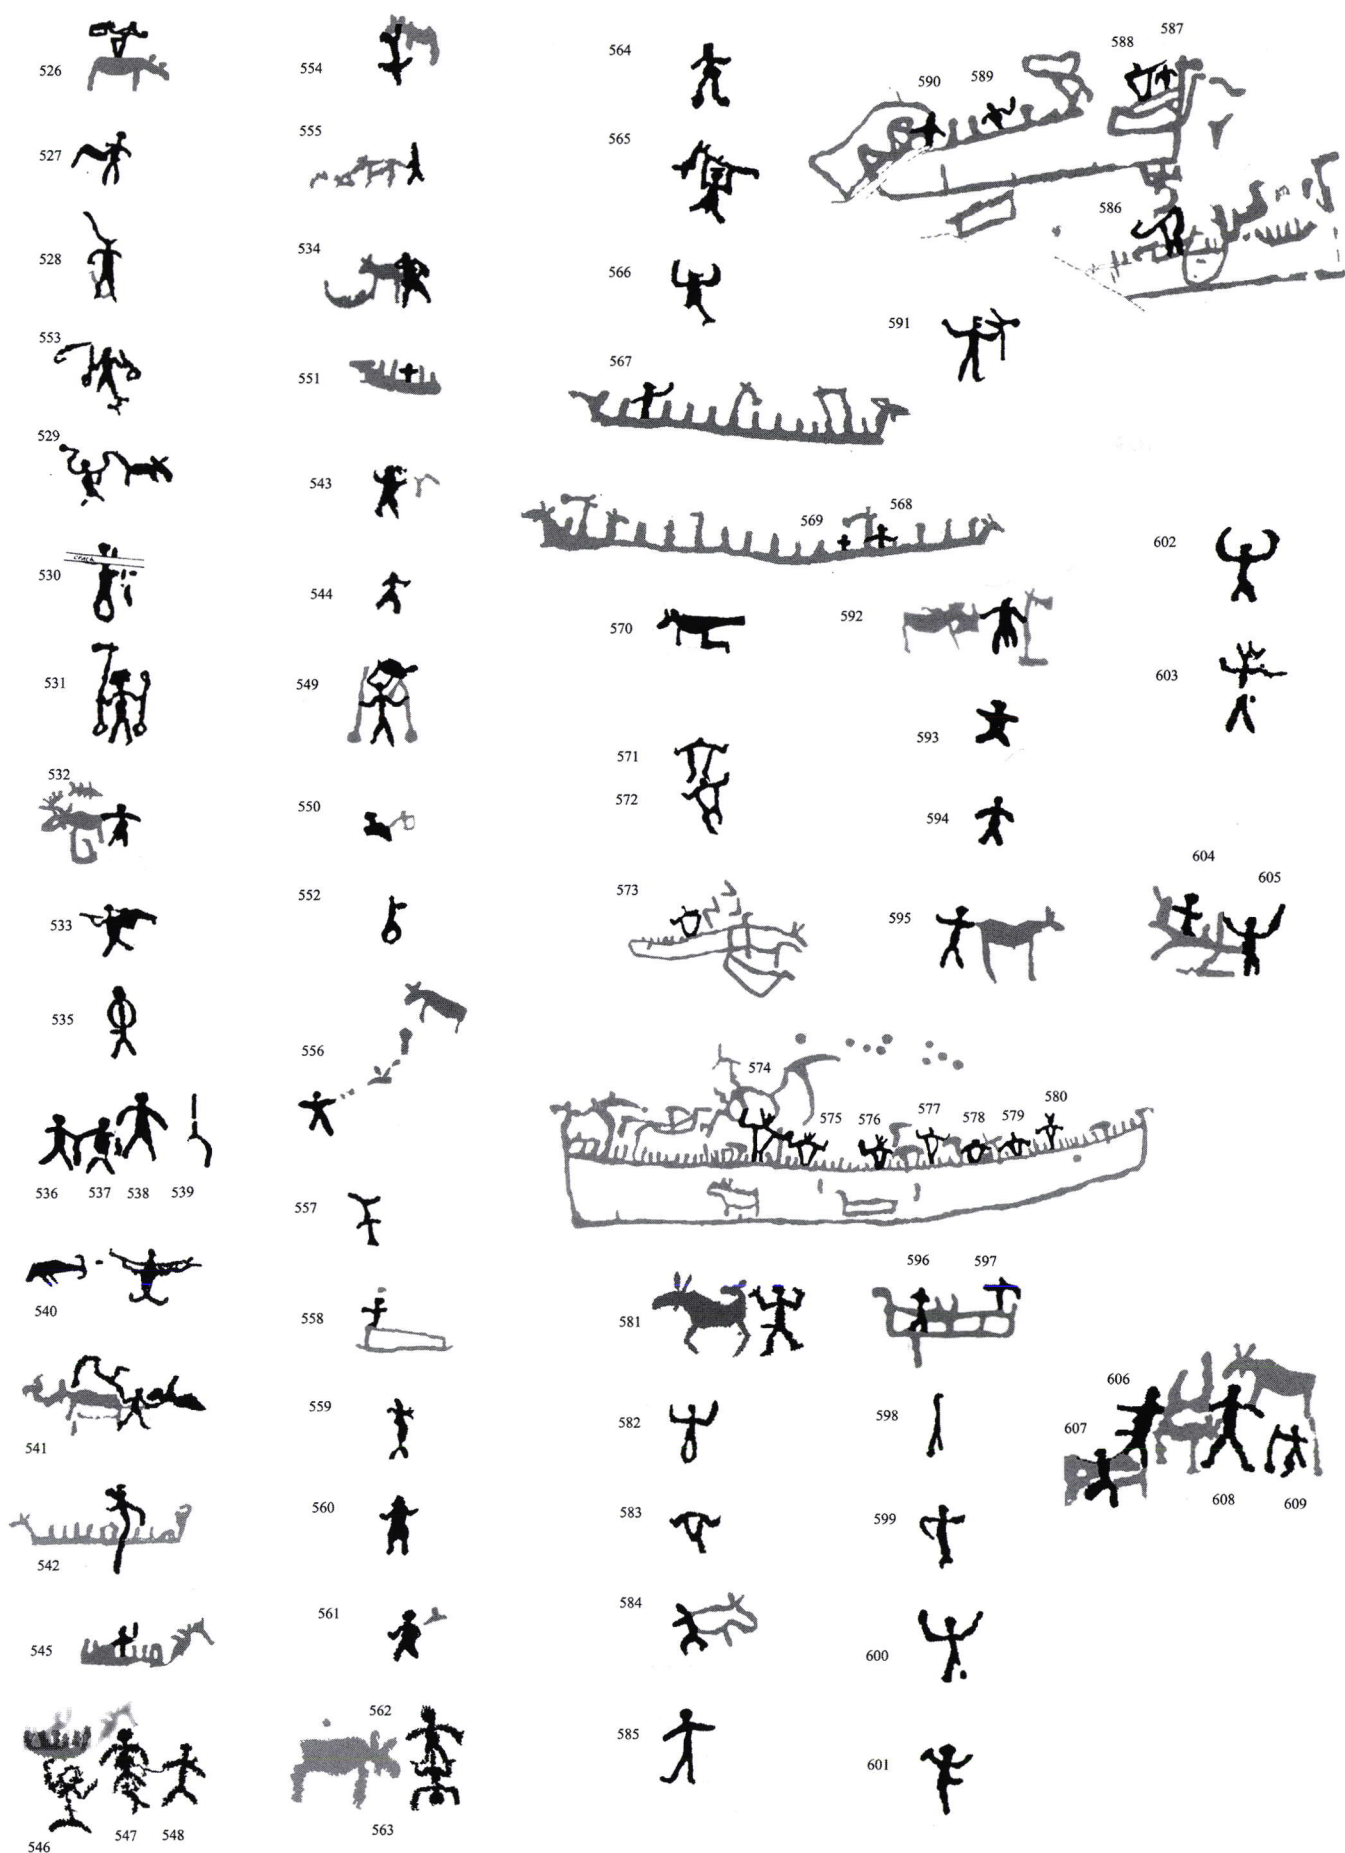 526
527
528
553
529
530
531
532
533
535
536 537 538 539
540
541
542
545
546 547 548
554
555
534
551
543
544
549
550
552
556
557
558
559
560
561
562
563
564
565
566
567
569 568
570
571
572
573
574
575 576 577 578 579 580
581
582
583
584
585
590 589 588 587
586
591
592
593
594
595
596 597
598
599
600
601
602
603
604
605
606
607
608 609